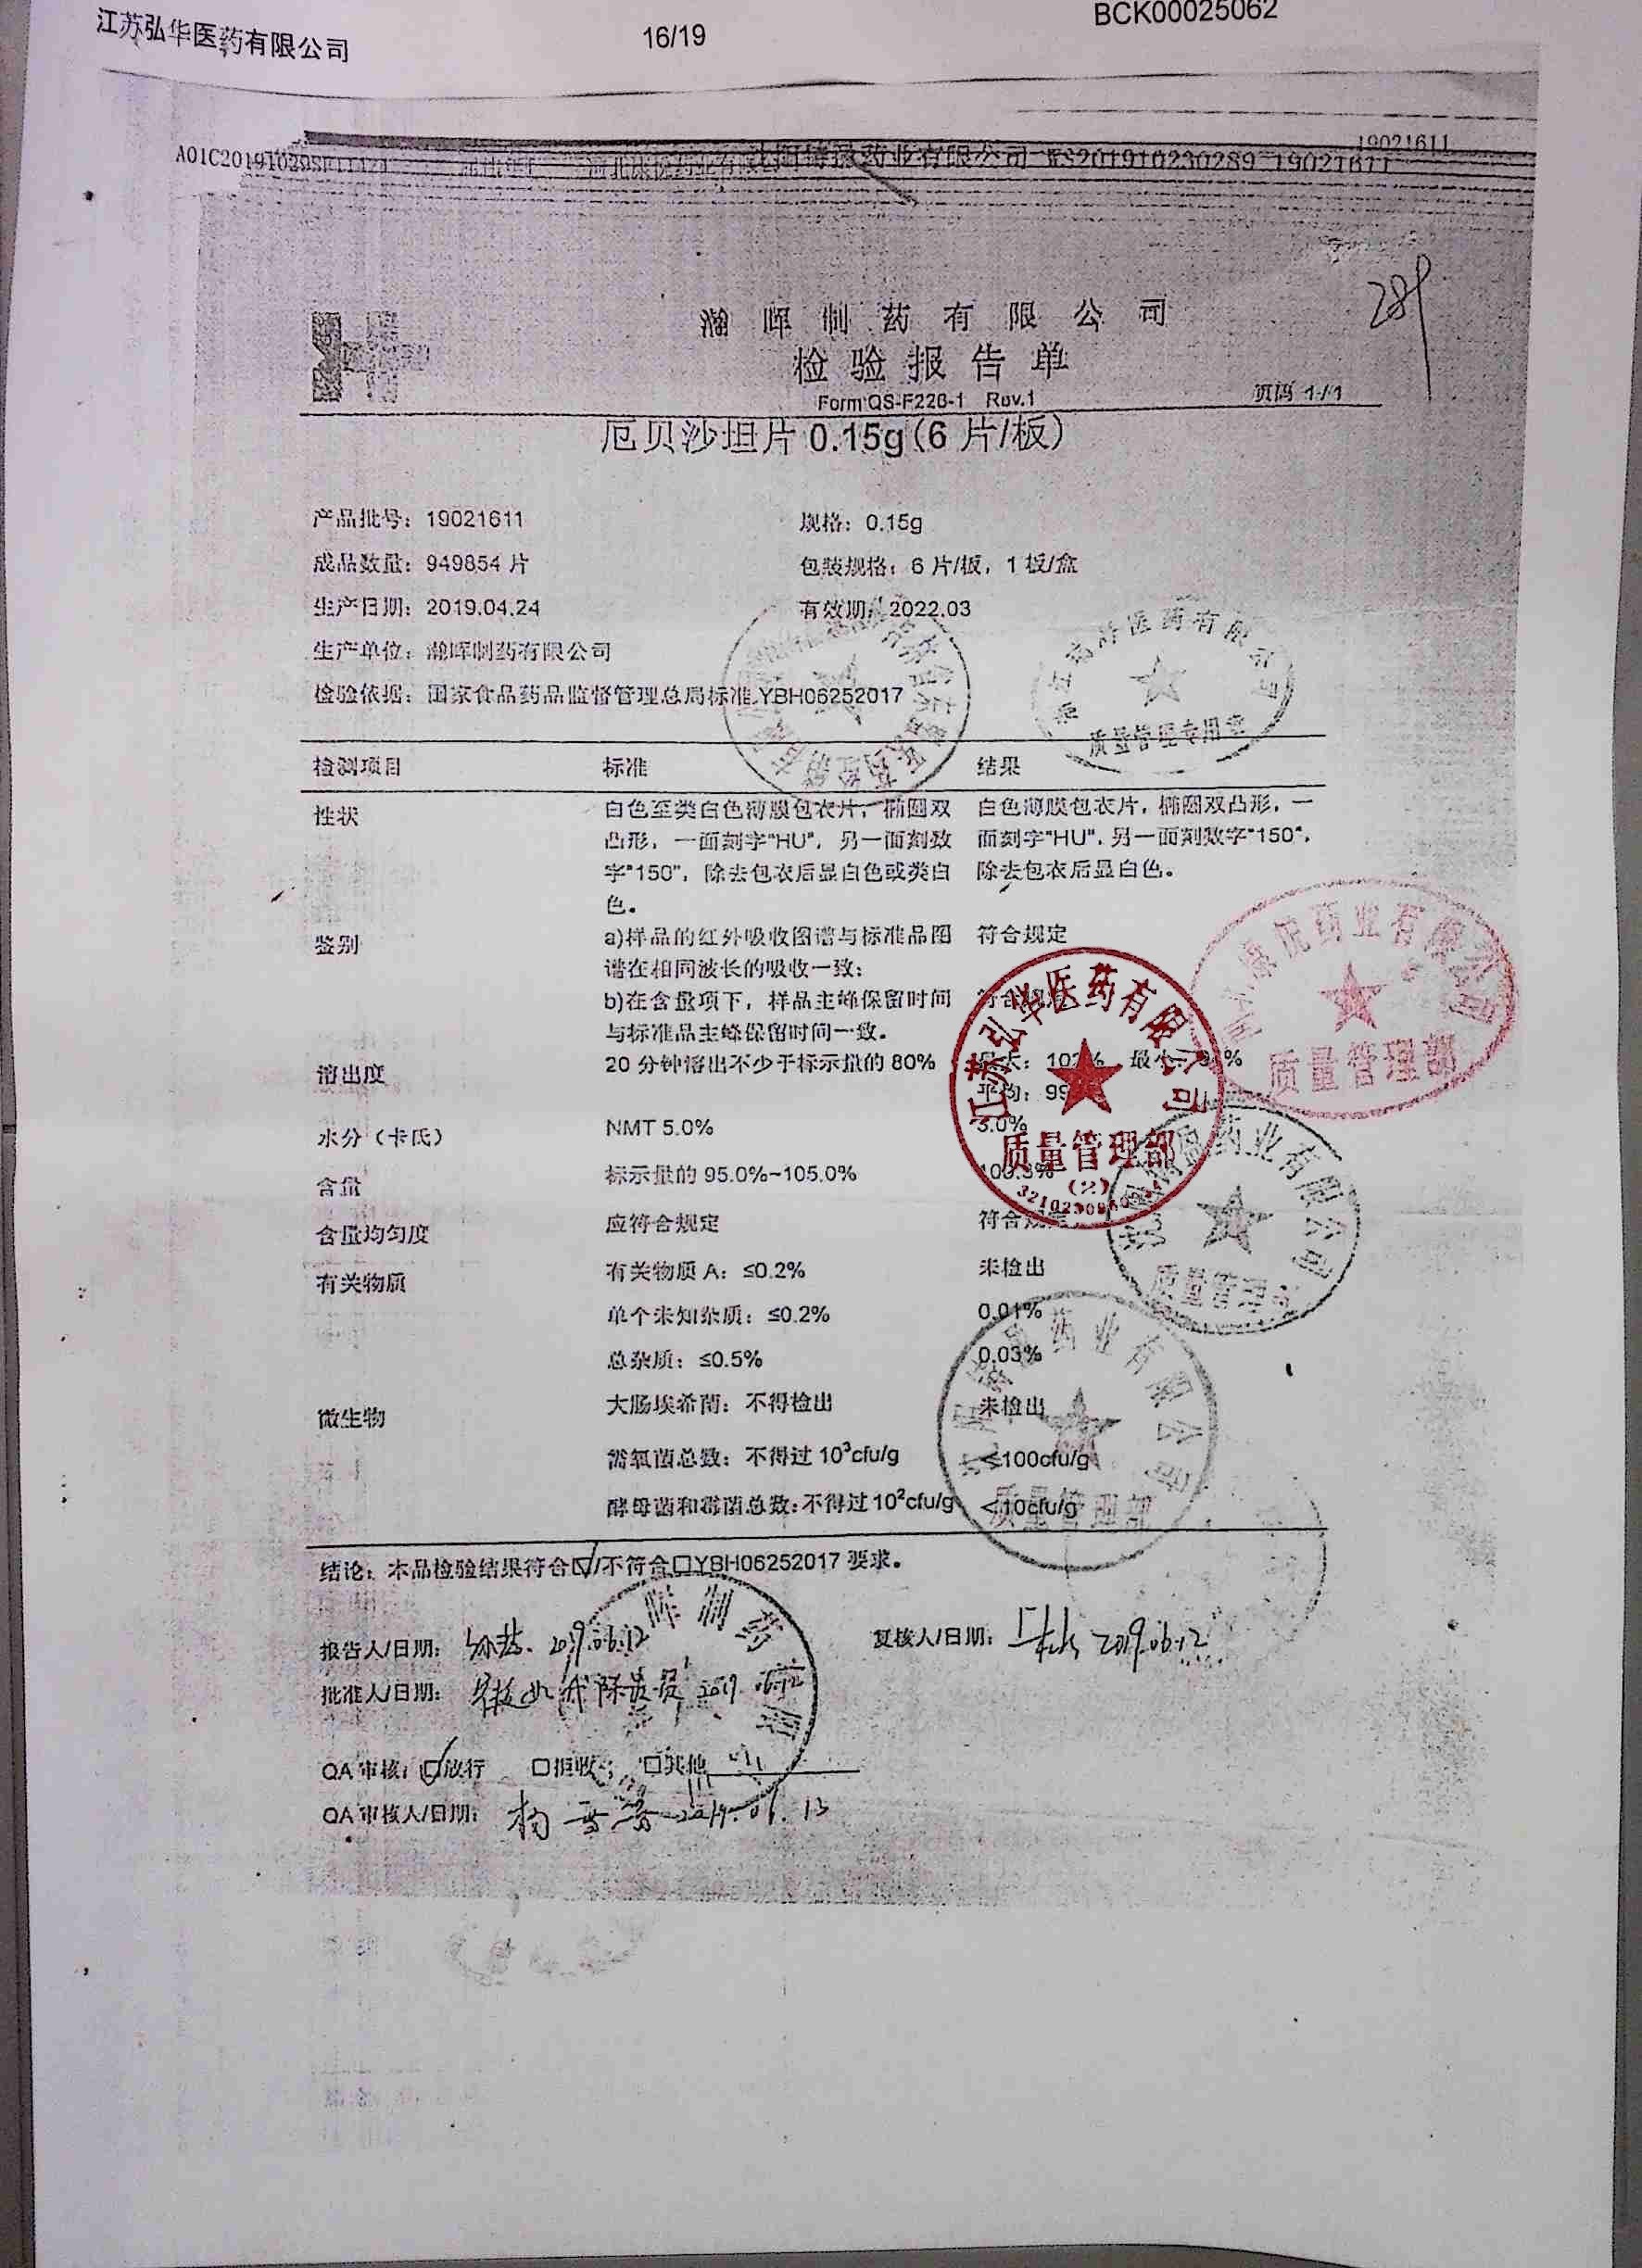 江苏弘华医药有限公司 16/19 BCK00025062
19021611
药业有限公司 19021611
289
瀚晖制药有限公司
检验报告单
Form QS-F226-1 Rev.1 页码 1/1
厄贝沙坦片 0.15g(6 片/板)
产品批号：19021611 规格：0.15g
成品数量：949854 片 包装规格：6 片/板，1 板/盒
生产日期：2019.04.24 有效期：2022.03
生产单位：瀚晖制药有限公司
检验依据：国家食品药品监督管理总局标准 YBH06252017
医药有限公司
质量管理专用章
检测项目 标准 结果
性状 白色至类白色薄膜包衣片，椭圆双 白色薄膜包衣片，椭圆双凸形，一
凸形，一面刻字"HU"，另一面刻数 面刻字"HU"，另一面刻数字"150"，
字"150"，除去包衣后显白色或类白 除去包衣后显白色。
色。
鉴别 a)样品的红外吸收图谱与标准品图 符合规定
谱在相同波长的吸收一致；
b)在含量项下，样品主峰保留时间 符合规定
与标准品主峰保留时间一致。
溶出度 20 分钟溶出不少于标示量的 80% 最大：10 % 最小： %
平均：99
水分（卡氏） NMT 5.0% 3.0%
含量 标示量的 95.0%~105.0% 100.3%
含量均匀度 应符合规定 符合规定
有关物质 有关物质 A：≤0.2% 未检出
单个未知杂质：≤0.2% 0.01%
总杂质：≤0.5% 0.03%
微生物 大肠埃希菌：不得检出 未检出
需氧菌总数：不得过 10³cfu/g <100cfu/g
酵母菌和霉菌总数：不得过 10²cfu/g <10cfu/g
江苏弘华医药有限公司
质量管理部
(2)
药业有限公司
质量管理部
药业有限公司
质量管理部
药业有限公司
质量管理部
结论：本品检验结果符合☑/不符合□YBH06252017 要求。
报告人/日期： 2019.06.12 复核人/日期： 2019.06.12
批准人/日期： 2019.06.12
QA 审核：☑放行 □拒收； □其他
QA 审核人/日期：